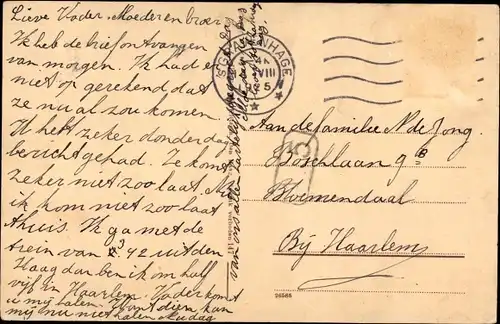 Lieve Vader, Moeder en broer
Ik heb de brief ontvangen
van morgen. Ik had er
niet op gerekend dat
ze nu al zou komen.
U heft zeker donderdag
bericht gehad. Ze komt
zeker niet zoo laat.
ik kom niet zoo laat
thuis. Ik ga met de
trein van 3 42 uit den
Haag dan ben ik om half
vijf in Haarlem. Vader komt
u mij halen. Want dien kan
mij nu niet halen
van ons allen hartelijk
'S GRAVENHAGE
VIII
5
Aan de familie N de Jong.
Boschlaan 9 B
Bloemendaal
Bij Haarlem
26568